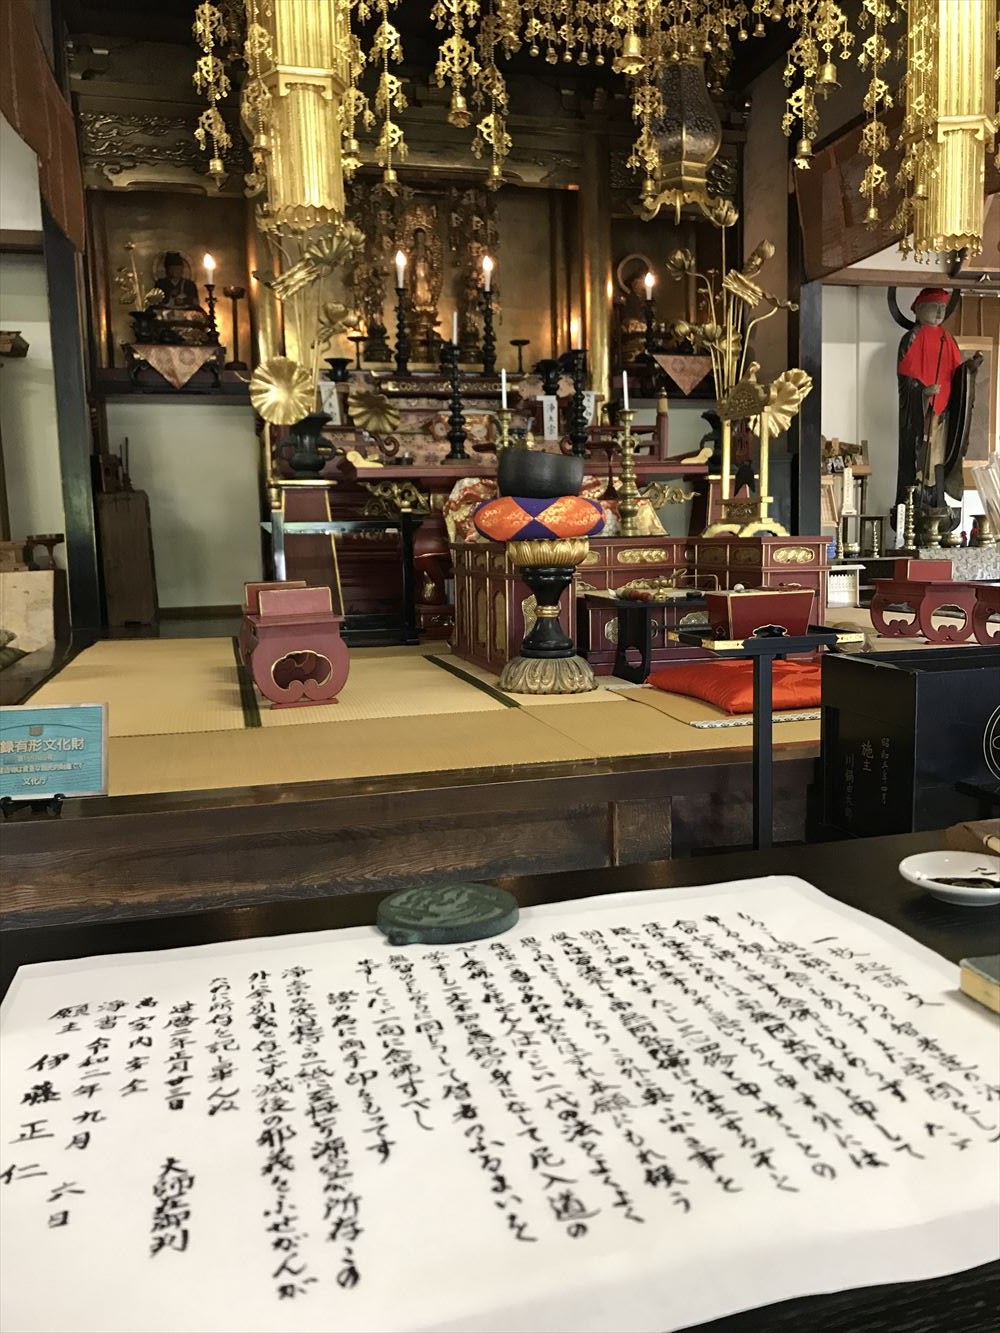 浄土宗
録有形文化財
文化庁
施主
一枚起請文
もろこし我朝にもろもろの智者達の沙
申さるる観念の念にもあらずまた学問をして
念の心を悟りて申す念仏にもあらず ただ
往生極楽のためには南無阿弥陀仏と申して
疑いなく往生するぞと思いとりて申す外には
別の子細候わずただし三心四修と申すことの
候うは皆決定して南無阿弥陀仏にて往生するぞと
思う内にこもり候うなりこの外に奥ふかき事を
存ぜば二尊のあわれみにはずれ本願にもれ候う
べし念仏を信ぜん人はたとい一代の法をよくよく
学すとも一文不知の愚鈍の身になして尼入道の
無智のともがらに同じうして智者のふるまいを
せずしてただ一向に念仏すべし
証の為に両手印をもってす
浄土宗の安心起行この一紙に至極せり源空が所存この
外に全く別義を存ぜず滅後の邪義をふせがんが
ために所存を記し畢んぬ
建暦二年正月廿三日 大師在御判
為 家内安全
浄書 令和二年九月六日
願主 伊藤正仁